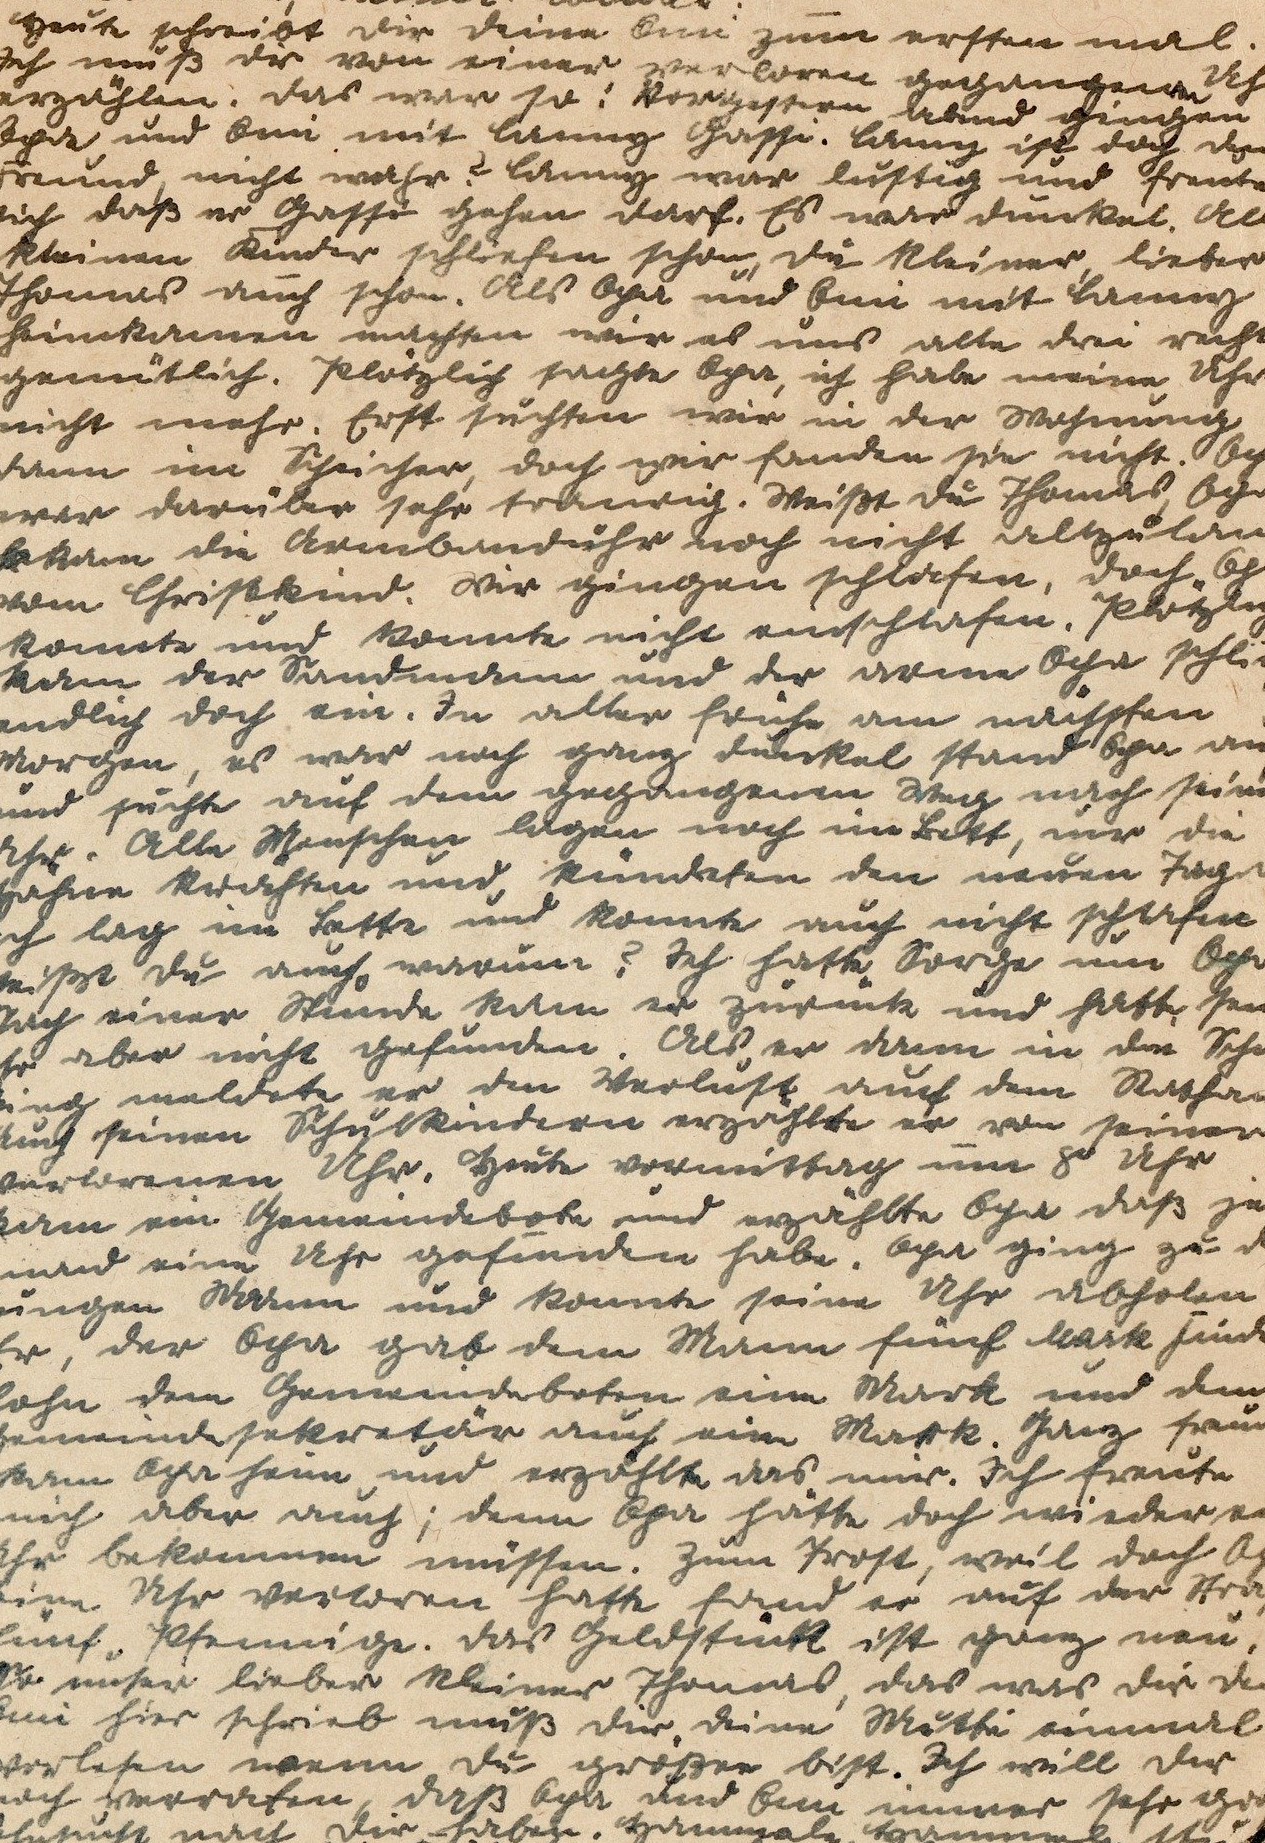 Heute schreibt dir deine Omi zum ersten mal.
Ich muß dir von einer verloren gegangenen Uh
erzählen. Das war so: Vorgestern abend gingen
Opa und Omi mit Lanny Gassi. Lanny ist doch dein
Freund, nicht wahr? Lanny war lustig und freute
sich daß er Gassi gehen darf. Es war dunkel. All
kleinen Kinder schliefen schon, du kleiner, lieber
Thomas auch schon. Als Opa und Omi mit Lanny
heimkamen machten wir es uns alle drei recht
gemütlich. Plötzlich sagte Opa, ich habe meine Uhr
nicht mehr. Erst suchten wir in der Wohnung
dann im Speicher, doch wir fanden sie nicht. Op
war darüber sehr traurig. Weißt du Thomas, Opa
bekam die Armbanduhr noch nicht allzulan
vom Christkind. Wir gingen schlafen, doch Op
konnte und konnte nicht einschlafen. Plötzlig
kam der Sandmann und der arme Opa schli
endlich doch ein. In aller frühe am nächsten
Morgen, es war noch ganz dunkel stand Opa au
und suchte auf dem gegangenen Weg nach seine
Uhr. Alle Menschen lagen noch im Bett, nur die
Hähne krähten und kündeten den neuen Tag a
ch lag im Bette und konnte auch nicht schlafen
weißt du auch warum? Ich hatte Sorge um Opa
Nach einer Stunde kam er zurück und hatte sen
hr aber nicht gefunden. Als er dann in die Schu
ging meldete er den Verlust auf dem Rathau
Auch seinen Schulkindern erzählte er von seiner
verlorenen Uhr. Heute vormittag um 8° Uhr
kam ein Gemeindebote und erzählte Opa daß je
mand eine Uhr gefunden habe. Opa ging zu d
jungen Mann und konnte seine Uhr abholen
Er, der Opa gab dem Mann fünf Mark Finde
lohn dem Gemeindeboten eine Mark und dem
Gemeindesekretär auch eine Mark. Ganz freud
kam Opa heim und erzählte das mir. Ich freute
mich aber auch; denn Opa hätte doch wieder ei
Uhr bekommen müssen. Zum Trost, weil doch Op
eine Uhr verloren hatte fand er auf der Stra
fünf Pfennige. Das Geldstück ist ganz neu.
So unser lieber kleiner Thomas, das was dir de
Omi hier schrieb muß dir deine Mutti einmal
vorlesen wenn du größer bist. Ich will dir
noch verraten, daß Opa und Omi immer sehr gro
ehnsucht nach Dir haben.